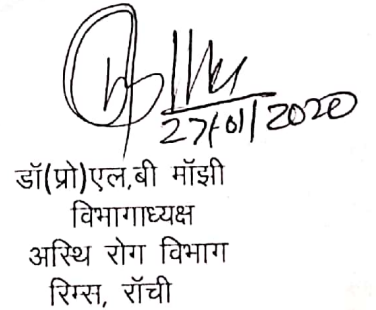 27/01/2020
डॉ(प्रो)एल.बी मॉझी
विभागाध्यक्ष
अस्थि रोग विभाग
रिम्स, रॉची